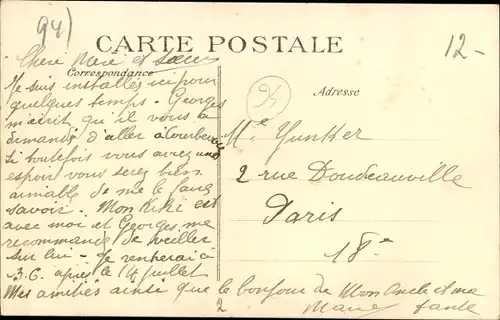 94)
CARTE POSTALE
12-
Chère Marie et sœur
Correspondance
Je suis installés ici pour
quelques temps - Georges
m'écrit qu'il vous a
demandé d'aller à Courbevoie
si toutefois vous avez un
espoir vous serez bien
aimable de me le faire
savoir. Mon Kiki est
avec moi et Georges me
recommande de veiller
sur lui - Je rentrerai à
B.C. après le 14 juillet
Mes amitiés ainsi que le bonjour de Mon Oncle et ma
tante
Marie
2
Adresse
Mme Yunker
2 rue Doudeauville
Paris
18e